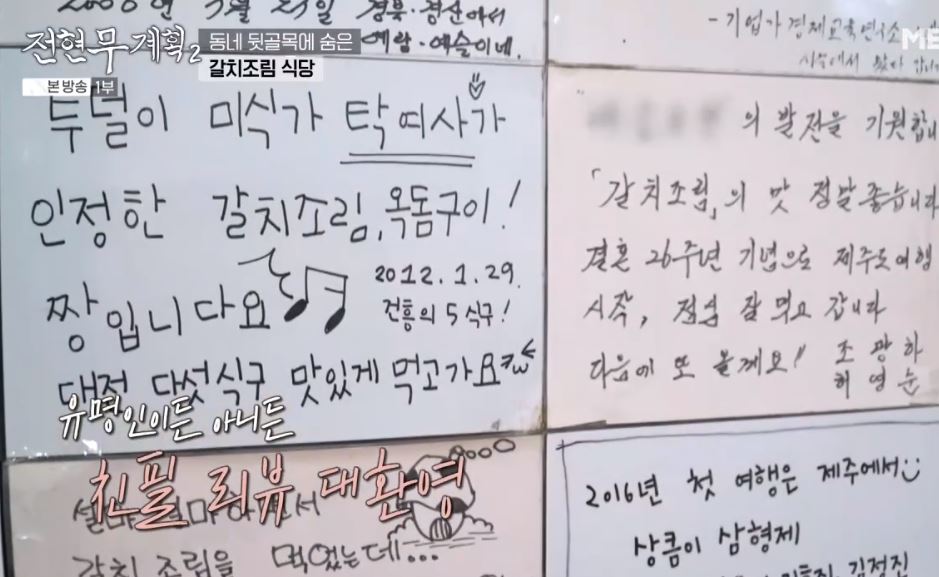 전현무계획2
동네 뒷골목에 숨은
갈치조림 식당
본방송 1부
경북·경산에서
예람·예슬이네.
-기업가경제교육연구소
투덜이 미식가 탁여사가
인정한 갈치조림, 옥돔구이!
짱입니다요
2012. 1. 29.
건흥의 5식구!
대전 다섯식구 맛있게 먹고가요
의 발전을 기원합니
「갈치조림」의 맛 정말 좋습니다
결혼 26주년 기념으로 제주도여행
시작, 점심 잘 먹고 갑니다
다음에 또 올께요!
조광하
허영순
유명인이든 아니든
친필 리뷰 대환영
갈치 조림을 먹었는데...
2016년 첫 여행은 제주에서
상큼이 삼형제
김정진